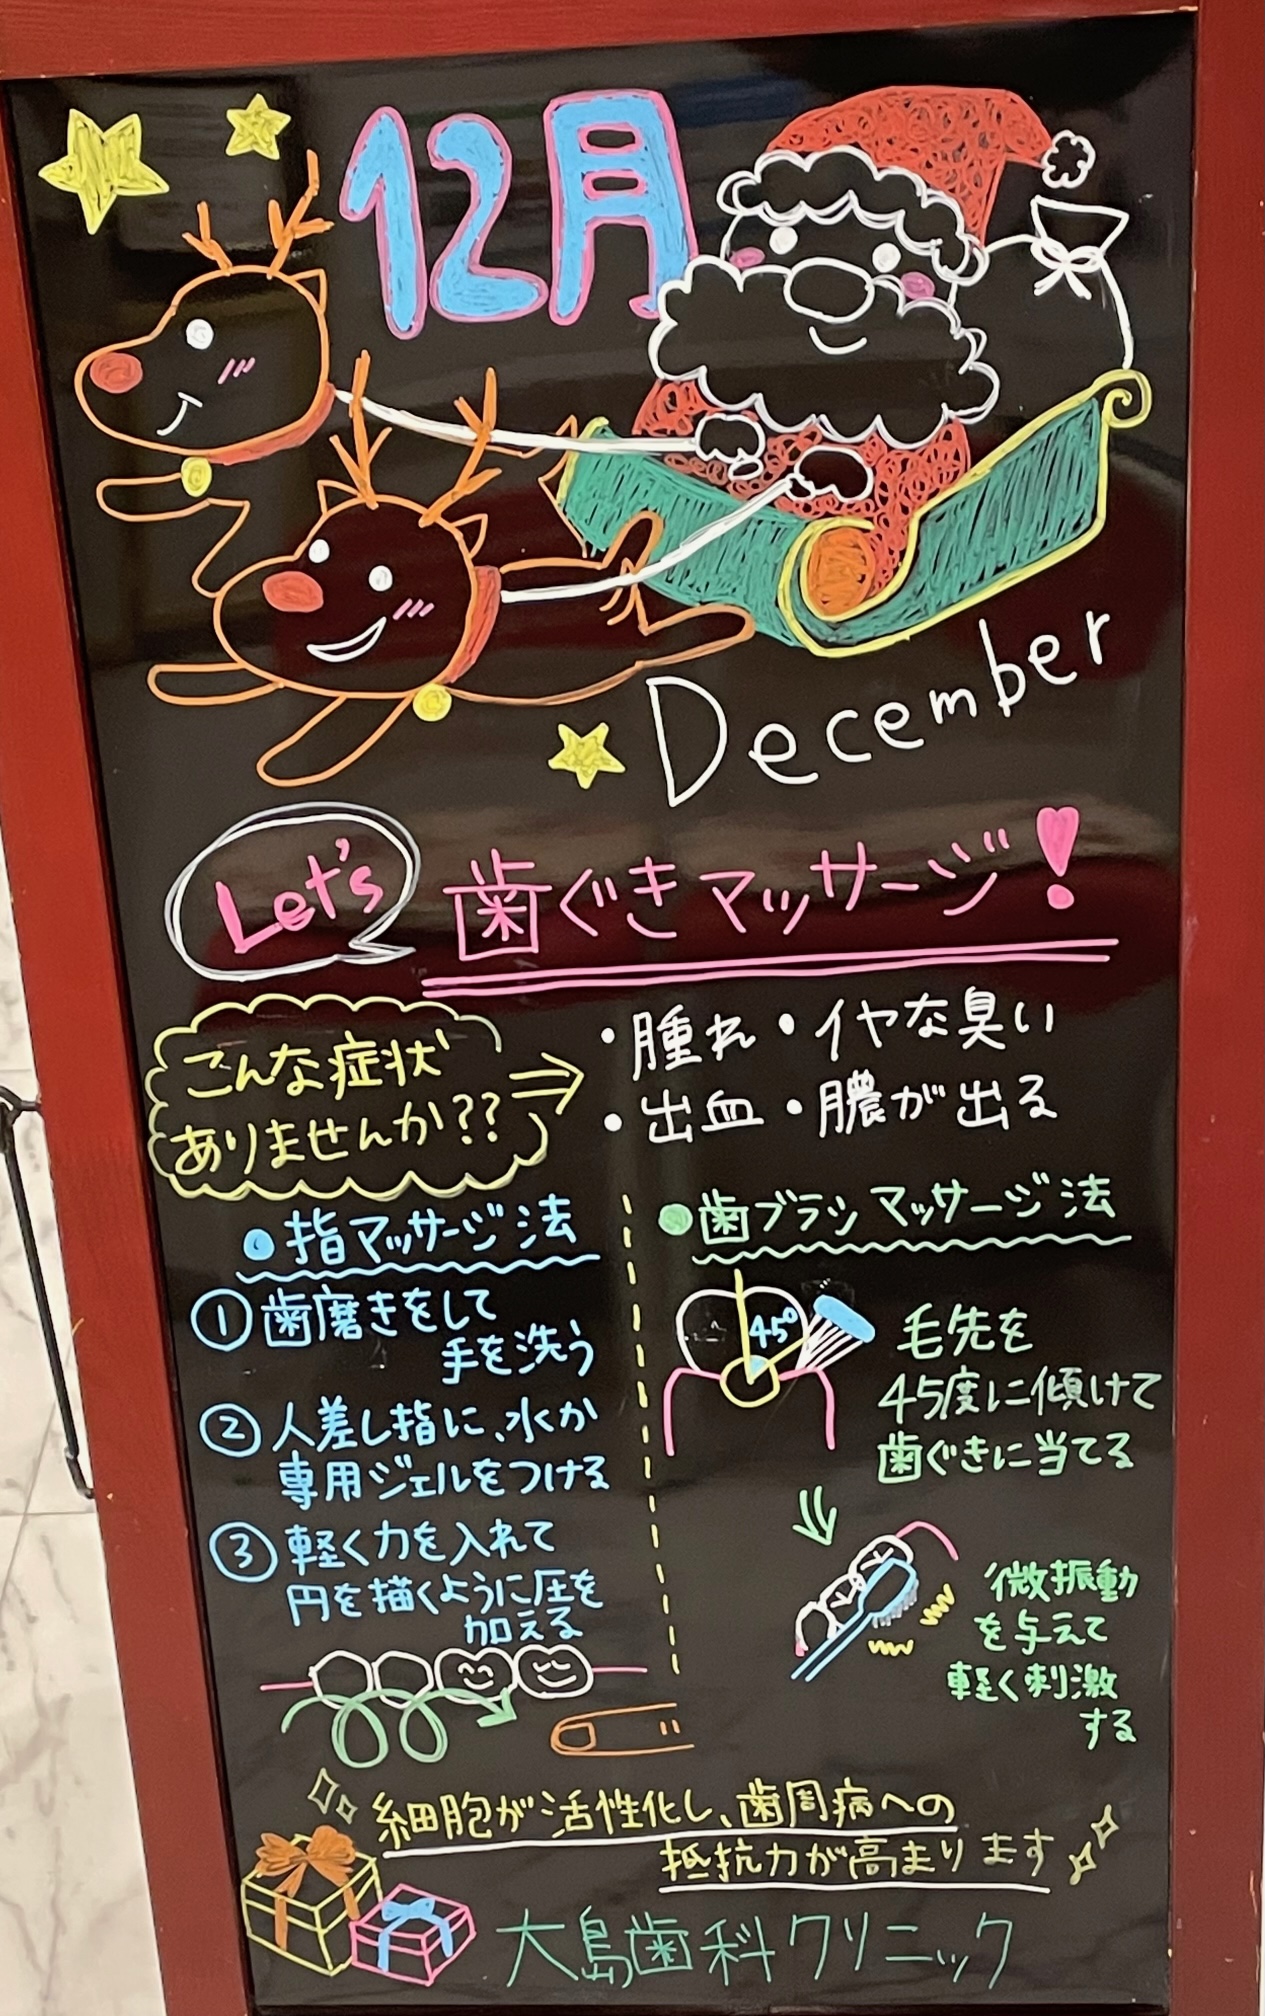 12月
December
Let's 歯ぐきマッサージ!
こんな症状
ありませんか??
⇒
・腫れ・イヤな臭い
・出血・膿が出る
●指マッサージ法
①歯磨きをして
手を洗う
②人差し指に、水か
専用ジェルをつける
③軽く力を入れて
円を描くように圧を
加える
●歯ブラシマッサージ法
45°
毛先を
45度に傾けて
歯ぐきに当てる
微振動
を与えて
軽く刺激
する
細胞が活性化し、歯周病への
抵抗力が高まります
大島歯科クリニック